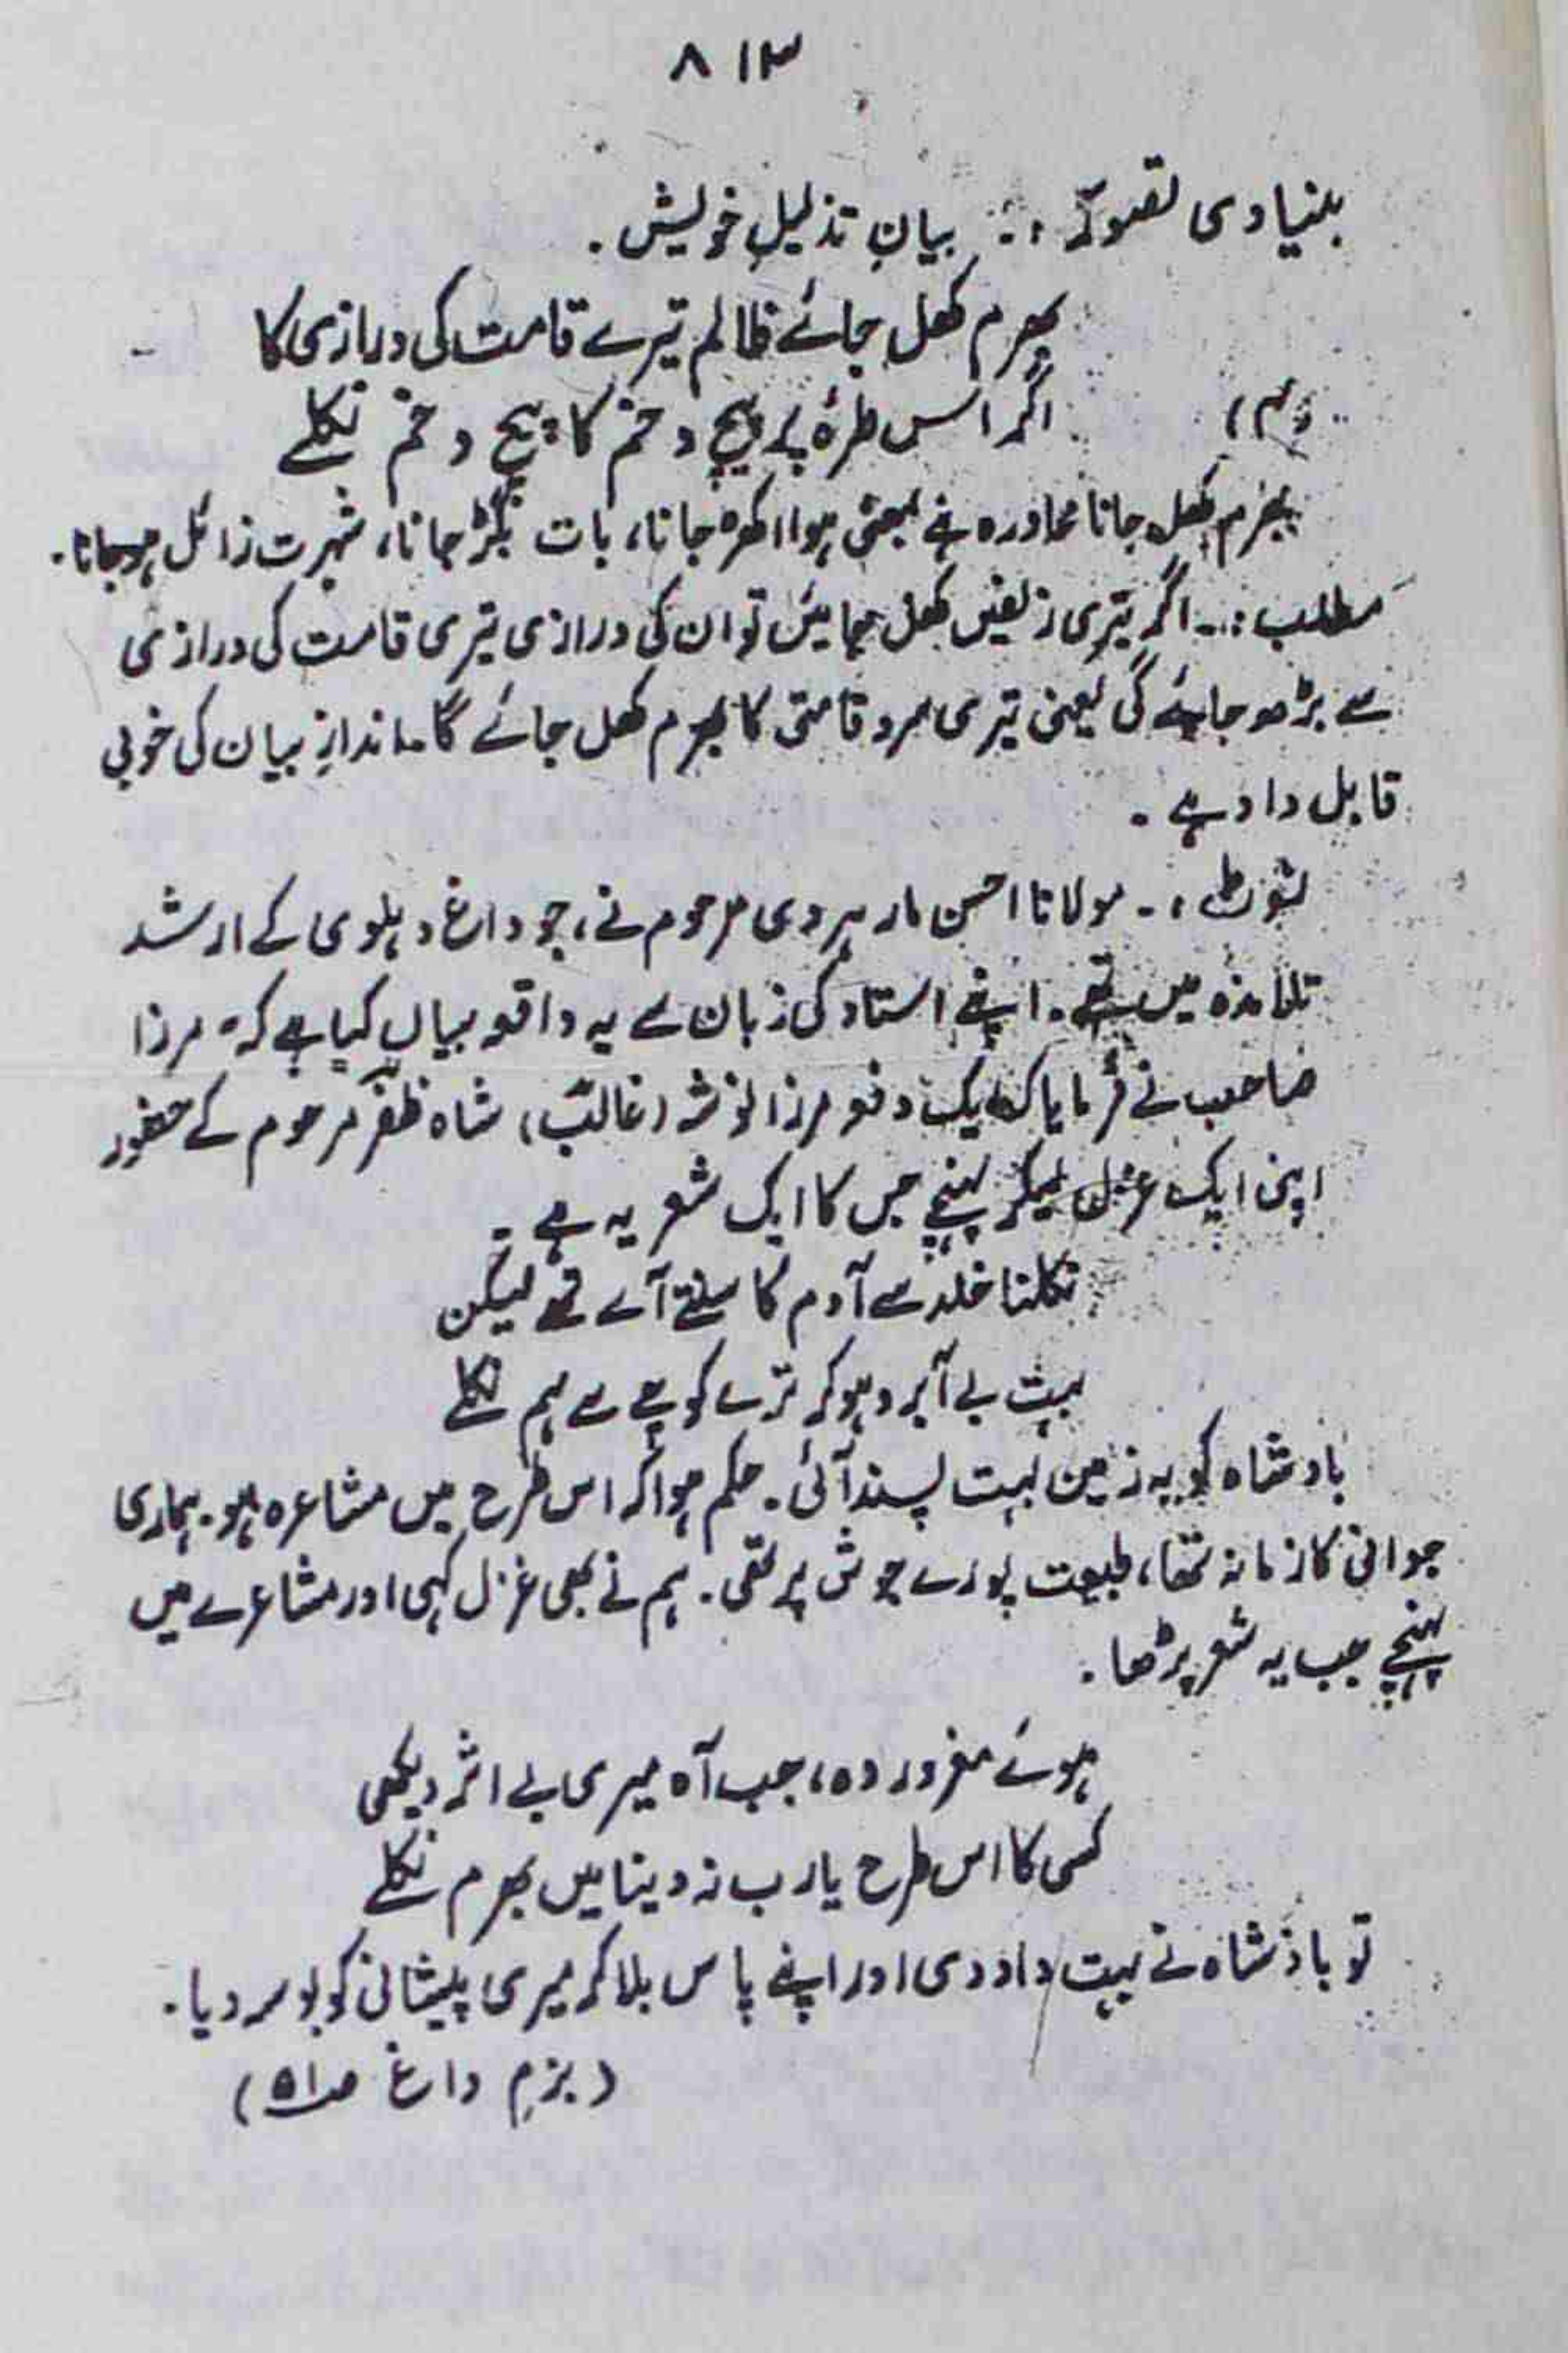 ۸۱۳
بنیادی تصور :۔ بیانِ تذلیلِ خویش ۔
بھرم کھل جائے ظالم تیرے قامت کی درازی کا
(۴) اگر اس طرۂ پر پیچ و خم کا پیچ و خم نکلے
بھرم کھل جانا محاورہ ہے بمعنی ہوا اکھڑ جانا، بات بگڑ جانا، شہرت زائل ہوجانا۔
مطلب :۔ اگر تیری زلفیں کھل جائیں تو ان کی درازی تیری قامت کی درازی
سے بڑھ جائے گی یعنی تیری سرو قامتی کا بھرم کھل جائے گا۔ اندازِ بیان کی خوبی
قابل داد ہے ۔
نوٹ :۔ مولانا احسن مارہروی مرحوم نے، جو داغ دہلوی کے ارشد
تلامذہ میں تھے۔ اپنے استاد کی زبان سے یہ واقعہ بیان کیا ہے کہ " مرزا
صاحب نے فرمایا کہ ایک دفعہ مرزا نوشہ (غالبؔ) شاہ ظفرؔ مرحوم کے حضور
اپنی ایک غزل لیکر پہنچے جس کا ایک شعر یہ ہے ۔
نکلنا خلد سے آدم کا سنتے آئے تھے لیکن
بہت بے آبرو ہوکر ترے کوچے سے ہم نکلے
بادشاہ کو یہ زمین بہت پسند آئی۔ حکم ہوا کہ اس طرح میں مشاعرہ ہو۔ ہماری
جوانی کا زمانہ تھا، طبیعت پورے جوش پر تھی۔ ہم نے بھی غزل کہی اور مشاعرے میں
پہنچے جب یہ شعر پڑھا ۔
ہوئے مغرور وہ، جب آہ میری بے اثر دیکھی
کسی کا اس طرح یارب نہ دنیا میں بھرم نکلے
تو بادشاہ نے بہت داد دی اور اپنے پاس بلا کر میری پیشانی کو بوسہ دیا۔
(بزمِ داغ ص۵۱)